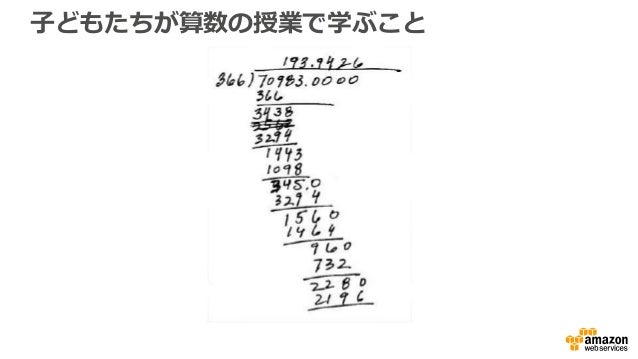 子どもたちが算数の授業で学ぶこと
193.9426
366)70983.0000
366
3438
3294
1443
1098
345.0
3294
1560
1464
960
732
2280
2196
amazon
web services